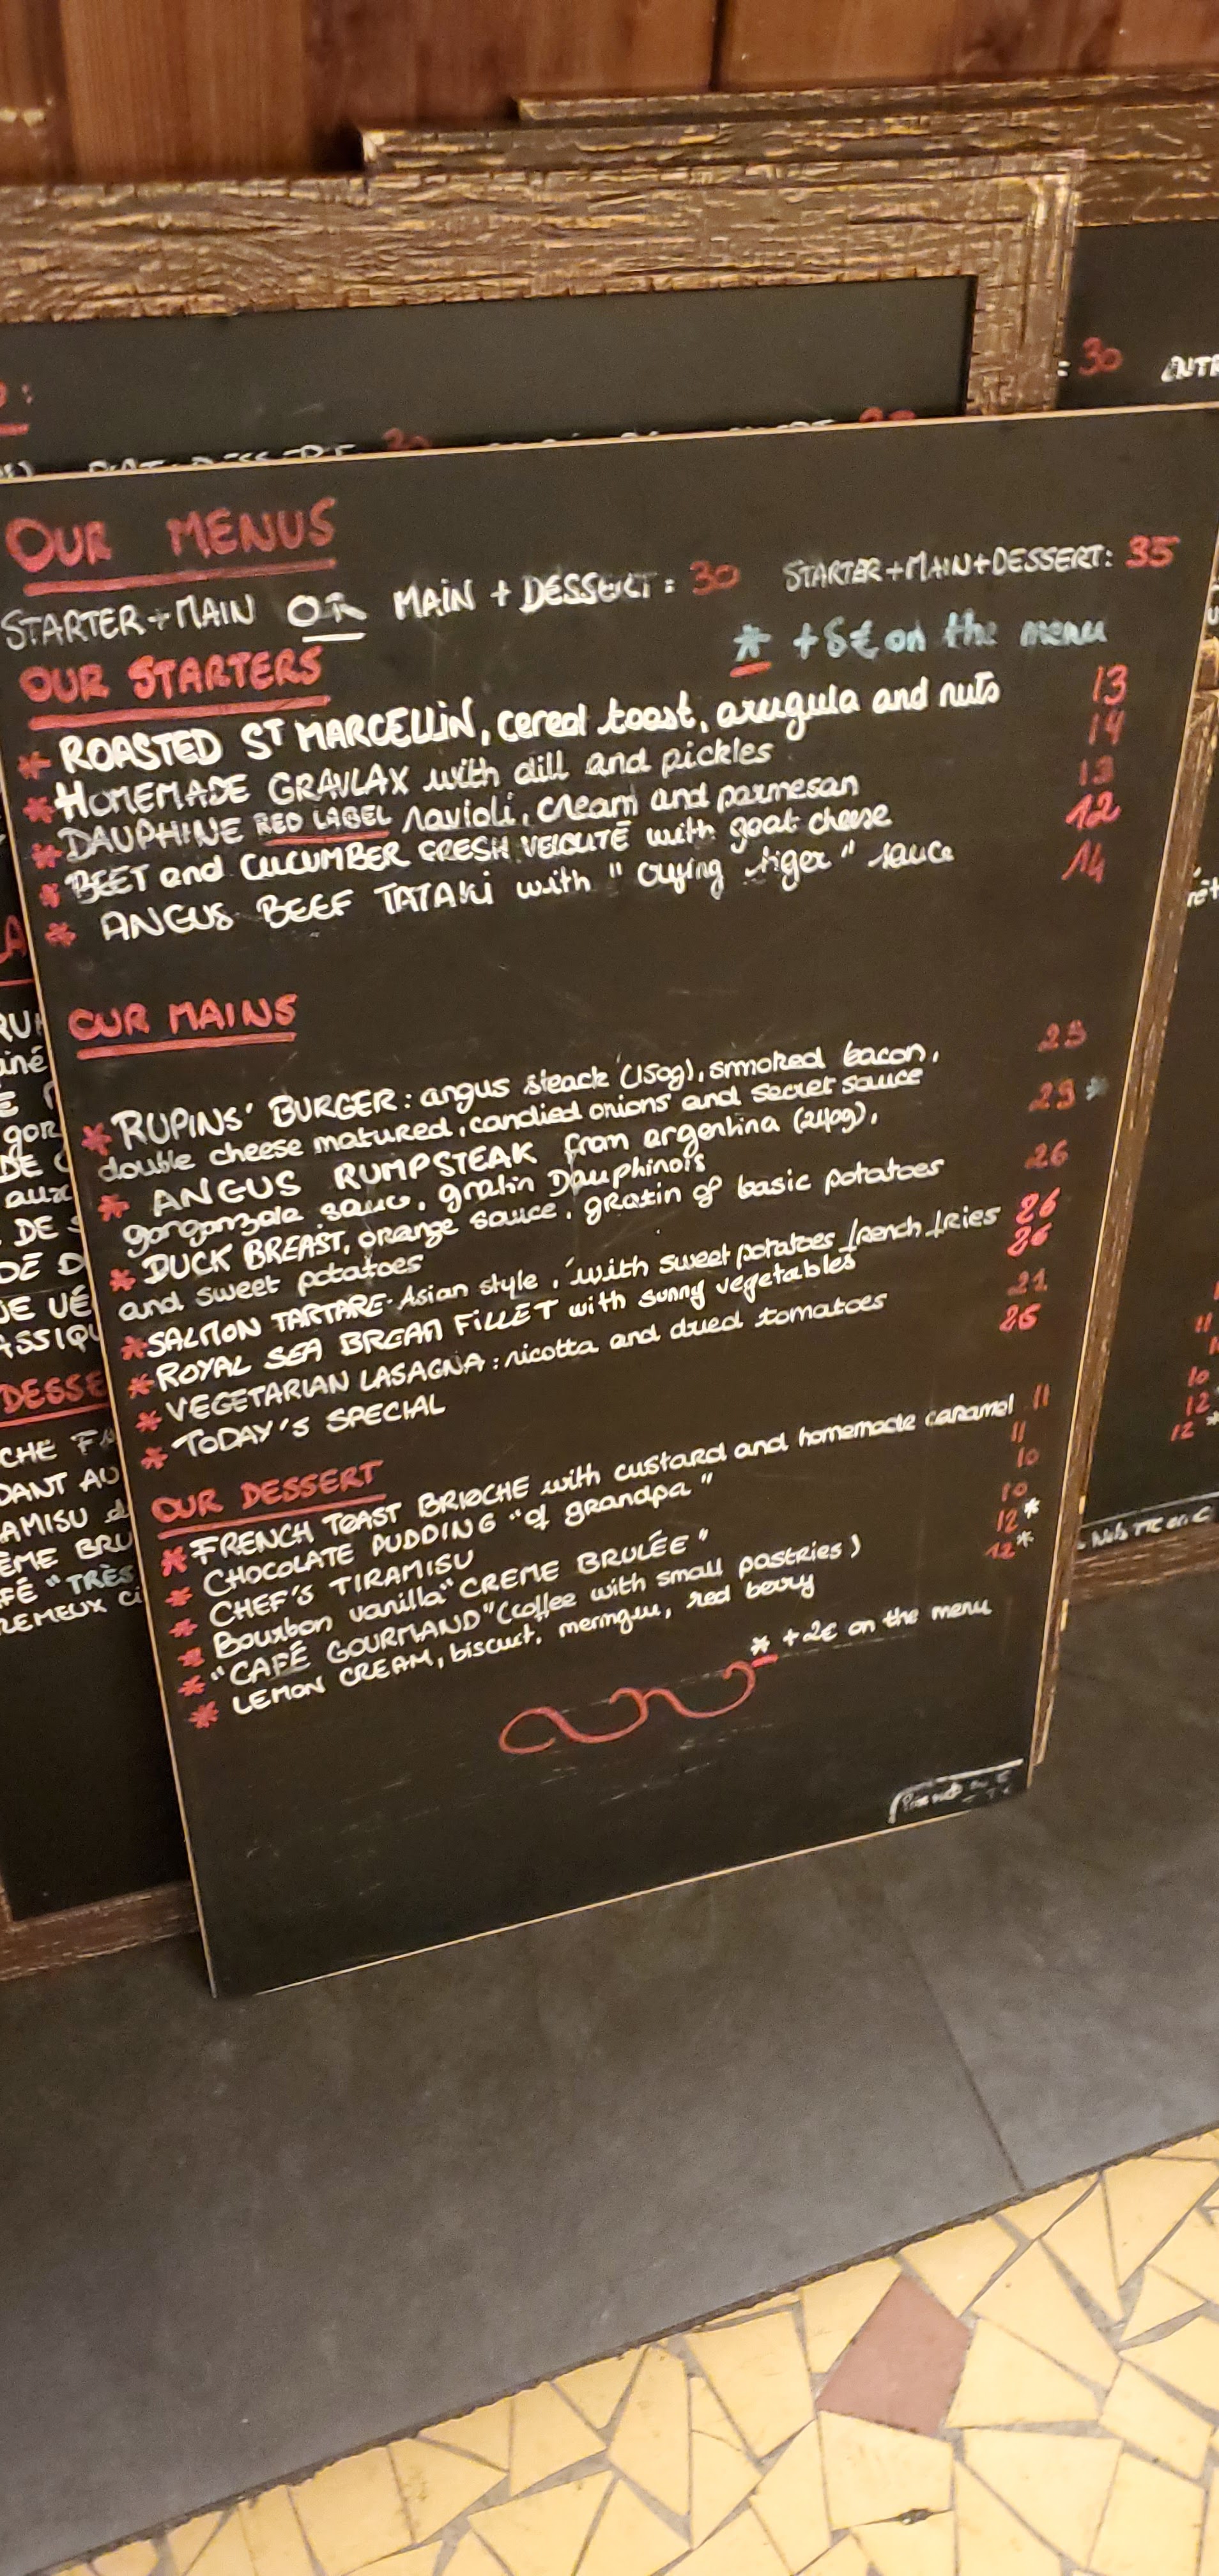 OUR MENUS
STARTER+MAIN OR MAIN + DESSERT: 30 STARTER+MAIN+DESSERT: 35
* +5€ on the menu
OUR STARTERS
* ROASTED ST MARCELLIN, cereal toast, arugula and nuts 13
* HOMEMADE GRAVLAX with dill and pickles 14
* DAUPHINE RED LABEL ravioli, cream and parmesan 13
* BEET and CUCUMBER FRESH VELOUTÉ with goat cheese 12
* ANGUS BEEF TATAKI with "crying tiger" sauce 14
OUR MAINS
* RUPINS' BURGER: angus steack (150g), smoked bacon, 23
double cheese matured, candied onions and secret sauce
* ANGUS RUMPSTEAK from argentina (240g), 29 *
gorgonzola sauce, gratin Dauphinois
* DUCK BREAST, orange sauce, gratin of basic potatoes 26
and sweet potatoes
* SALMON TARTARE Asian style, with sweet potatoes french fries 26
* ROYAL SEA BREAM FILLET with sunny vegetables 26
* VEGETARIAN LASAGNA: ricotta and dried tomatoes 21
* TODAY'S SPECIAL 26
OUR DESSERT
* FRENCH TOAST BRIOCHE with custard and homemade caramel 11
* CHOCOLATE PUDDING "of grandpa" 11
* CHEF'S TIRAMISU 10
* Bourbon vanilla "CREME BRULÉE" 10
* "CAFÉ GOURMAND" (coffee with small pastries) 12*
* LEMON CREAM, biscuit, meringue, red berry 12*
* +2€ on the menu
30
DESSE
DE
AMISU
BRU
"TRÈS
11
10
12
12 *